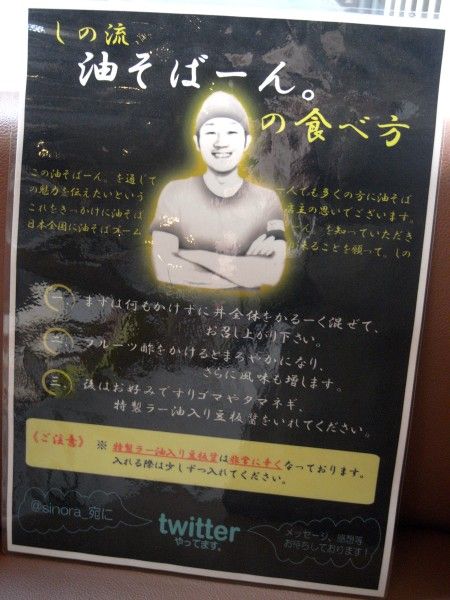 しの流、
油そばーん。
の食べ方
この油そばーん。を通じて
の魅力を伝えたいという
これをきっかけに油そば
日本全国に油そばブーム
一人でも多くの方に油そば
店主の思いでございます。
を知っていただき
来ることを願って。しの
一、まずは何もかけずに丼全体をかるーく混ぜて、
お召し上がり下さい。
二、フルーツ酢をかけるとまろやかになり、
さらに風味も増します。
三、後はお好みですりゴマやタマネギ、
特製ラー油入り豆板醤をいれてください。
《ご注意》 ※ 特製ラー油入り豆板醤は非常に辛くなっております。
入れる際は少しずつ入れてください。
@sinora_宛に
twitter
やってます。
メッセージ、感想等、
お待ちしております!